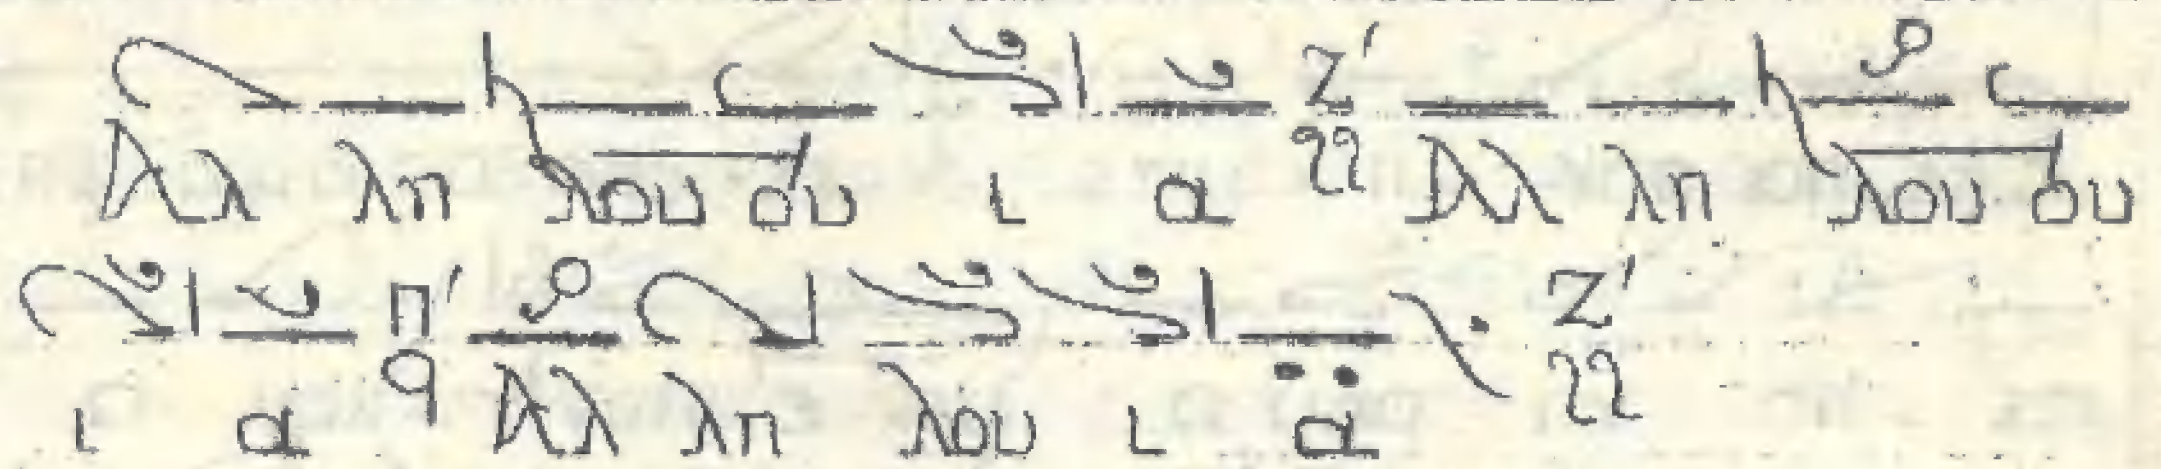 Ζ΄
Αλ λη λου ου ι α Αλ λη λου ου
Π΄ Ζ΄
ι α Αλ λη λου ι α